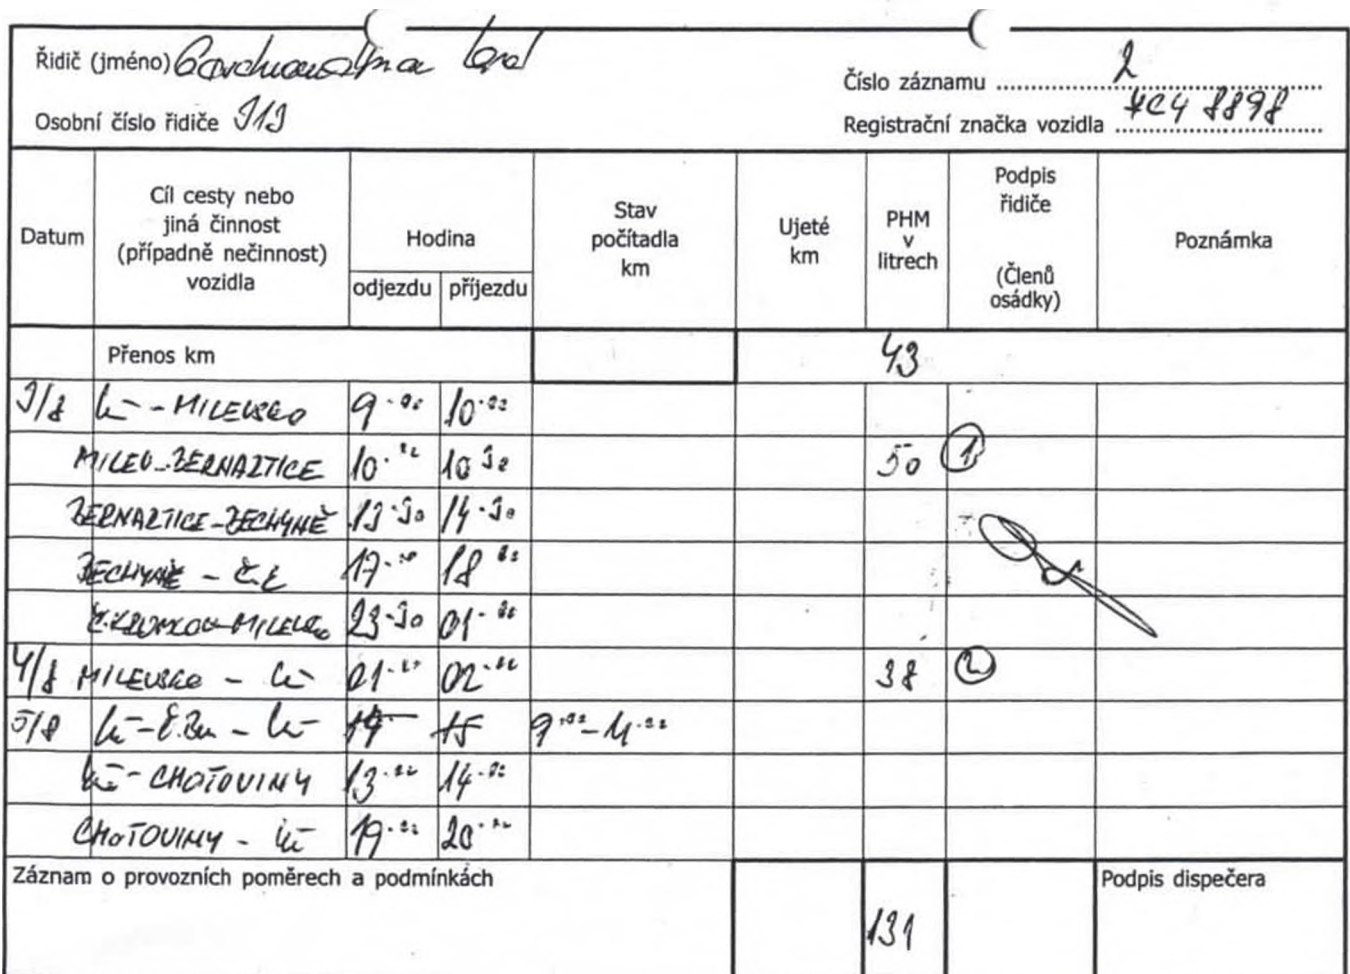 Řidič (jméno)
Číslo záznamu 2
Osobní číslo řidiče 919
Registrační značka vozidla 4C4 8898
Datum
Cíl cesty nebo
jiná činnost
(případně nečinnost)
vozidla
Hodina
odjezdu příjezdu
Stav
počítadla
km
Ujeté
km
PHM
v
litrech
Podpis
řidiče
(Členů
osádky)
Poznámka
Přenos km 43
3/8 - MILEVSKO 9.00 10.00
MILEV-BERNARTICE 10.00 10 30 50 1
BERNARTICE-BECHYNĚ 13.30 14.30
BECHYNĚ - Č.K 17.00 18.00
Č.KRUMLOV-MILEVSKO 23.30 01.00
4/8 MILEVSKO - 01.00 02.00 38 2
5/8 9.00-11.00
- CHOTOVINY 13.00 14.00
CHOTOVINY - 19.00 20.00
Záznam o provozních poměrech a podmínkách
131
Podpis dispečera